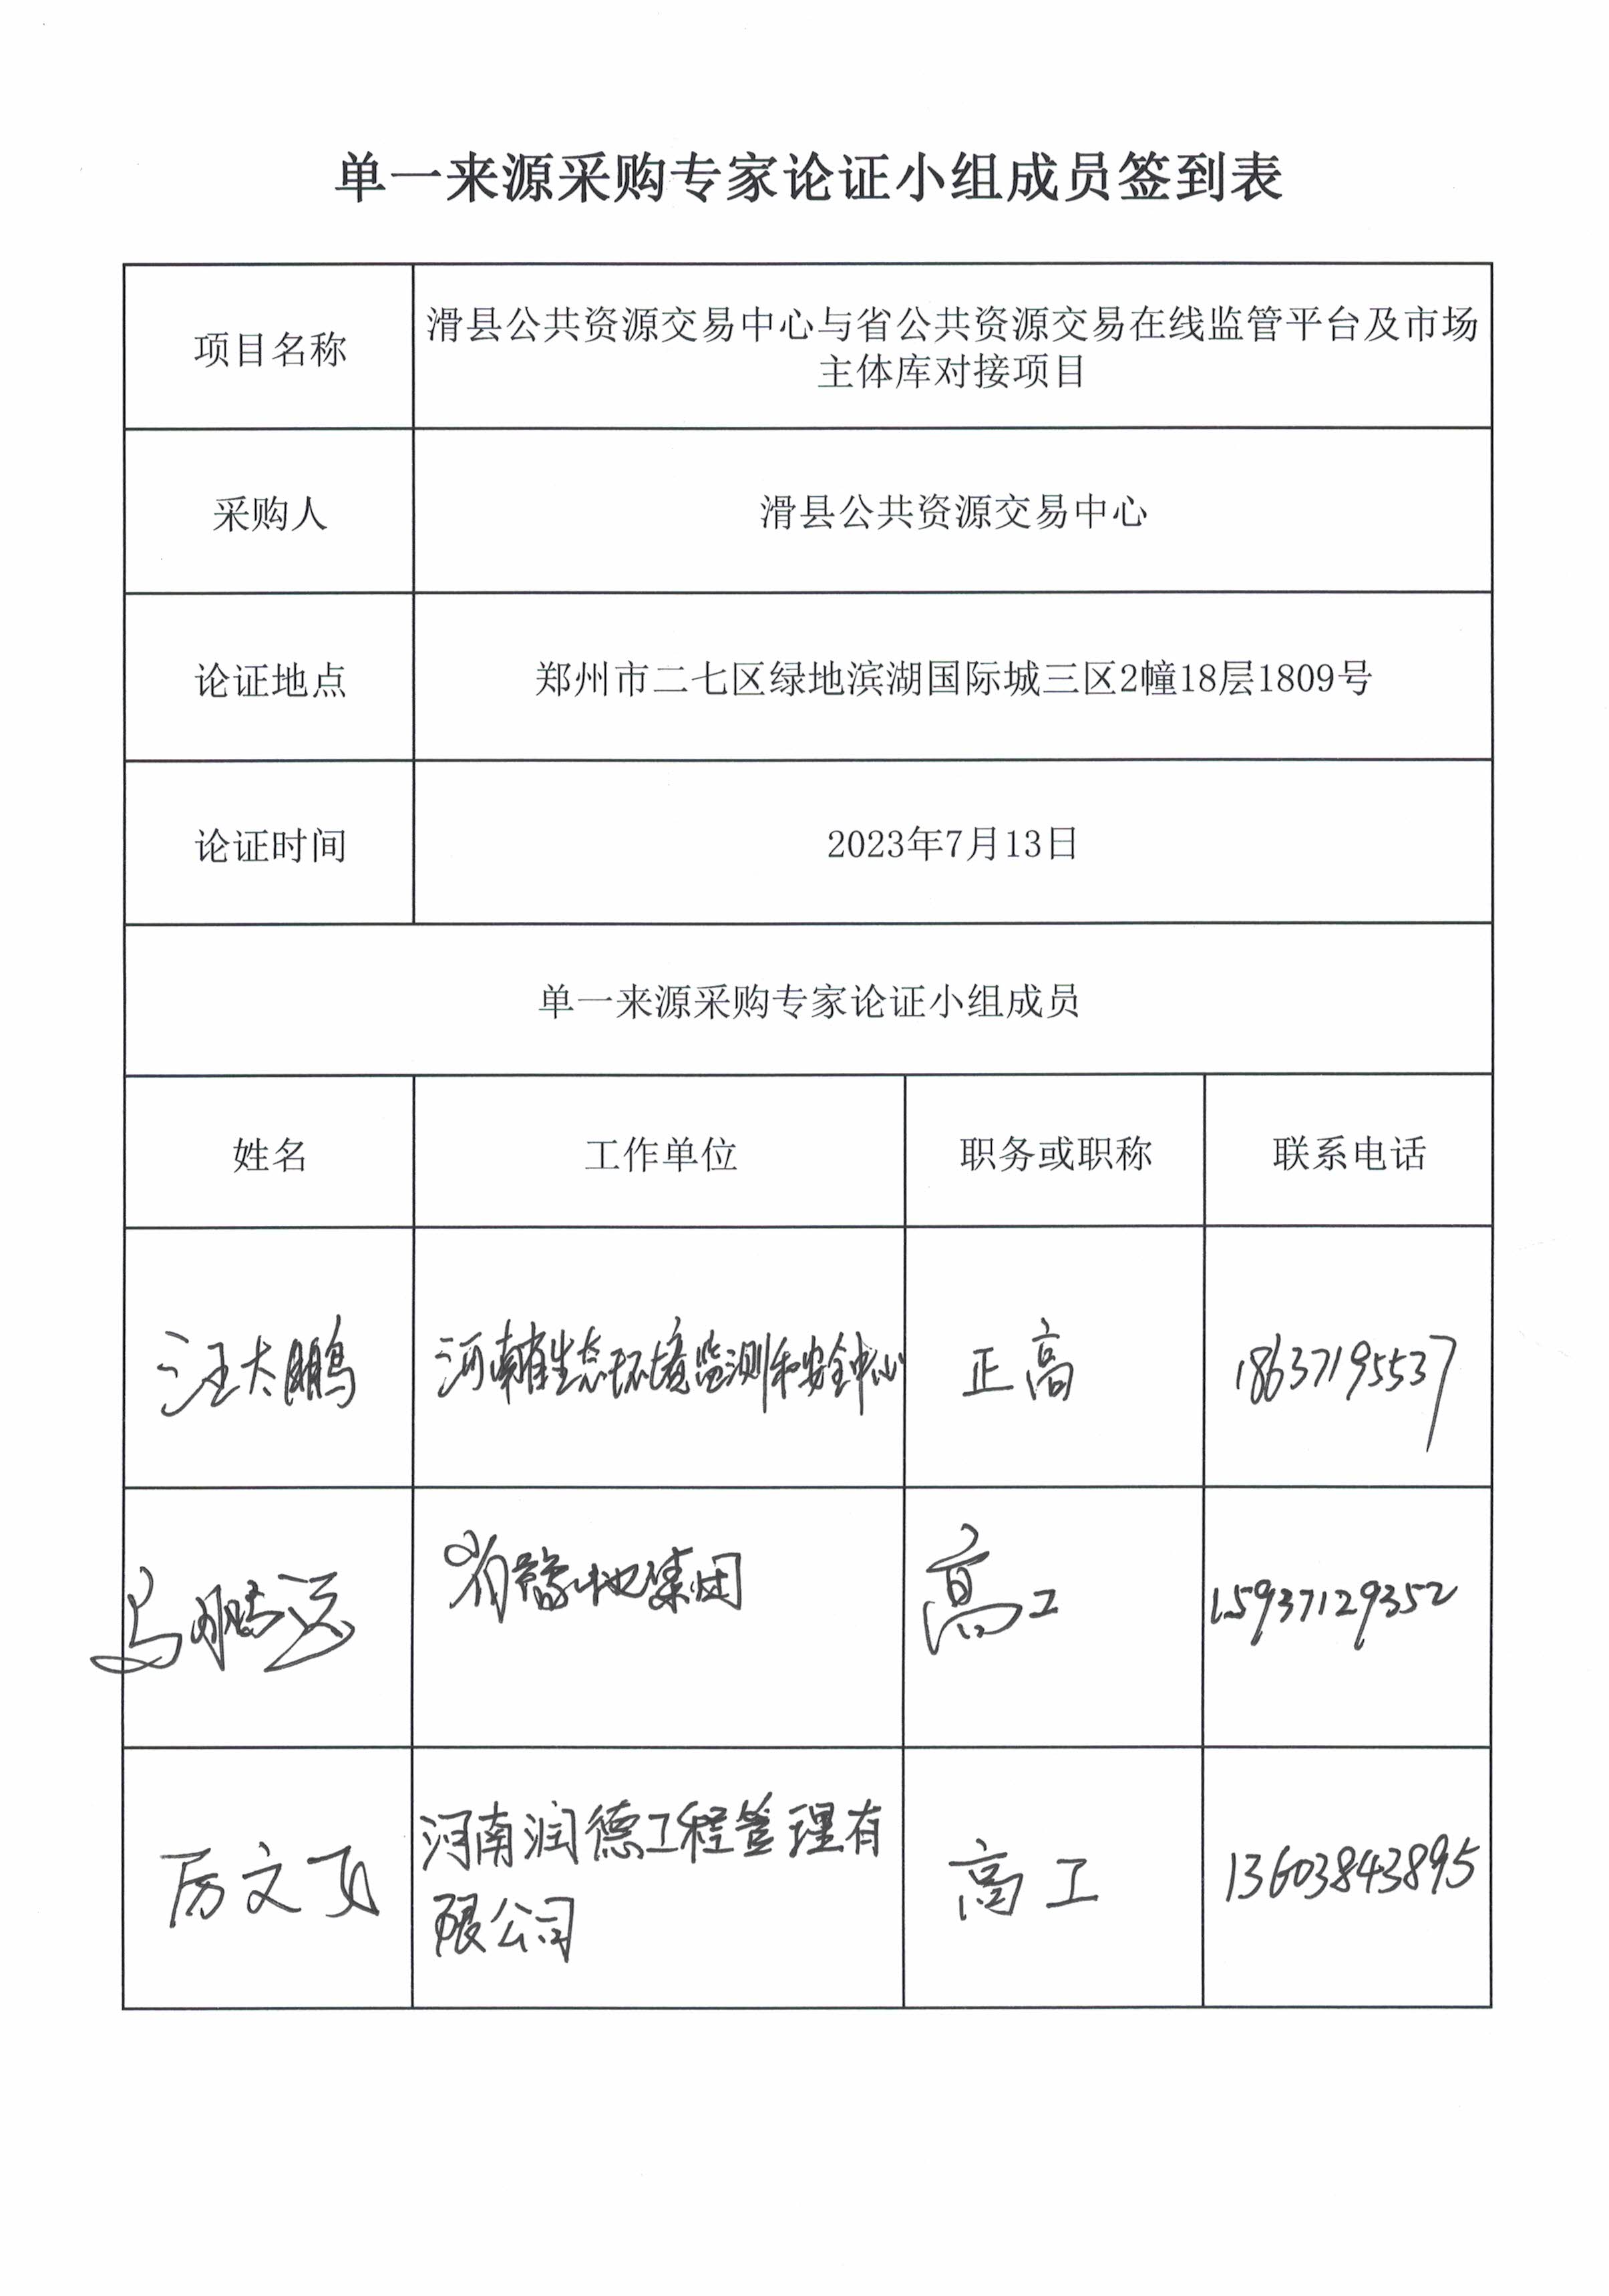 单一来源采购专家论证小组成员签到表
项目名称
滑县公共资源交易中心与省公共资源交易在线监管平台及市场
主体库对接项目
采购人
滑县公共资源交易中心
论证地点
郑州市二七区绿地滨湖国际城三区2幢18层1809号
论证时间
2023年7月13日
单一来源采购专家论证小组成员
姓名
工作单位
职务或职称
联系电话
汪大鹏
河南省生态环境监测和安全中心
正高
18637195537
马腾运
省豫地集团
高工
15937129352
厉文
河南润德工程管理有
限公司
高工
13603843895